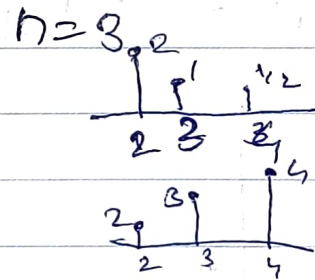 n=3
2 1 1/2
2 3
4
2 3
2 3 4